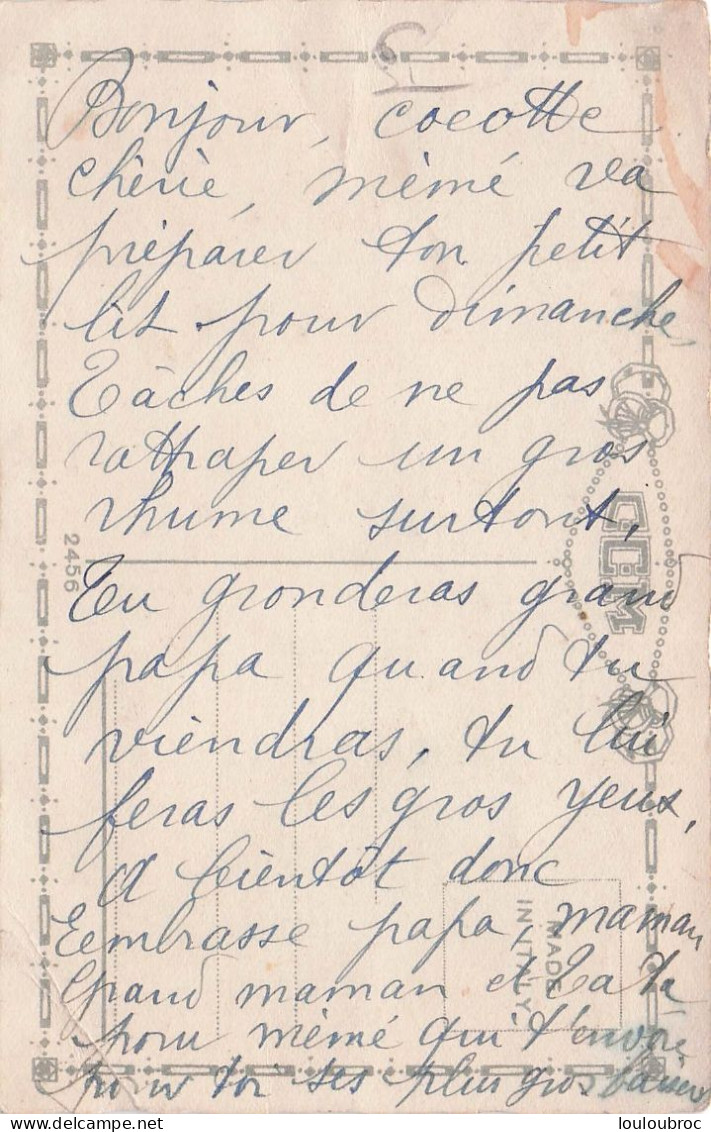 Bonjour, cocotte
chèrie, mèmé va
prèparer ton petit
lit pour dimanche,
Tâches de ne pas
rattraper un gros
rhume surtout,
2456
CCM
Tu gronderas grand
papa quand tu
viendras, tu lui
feras les gros yeux,
A bientôt donc
Eembrasse papa, maman
MADE
IN ITALY
Grand maman et Tata
pour mèmé qui t'envoie
pour toi ses plus gros baisers
louloubroc